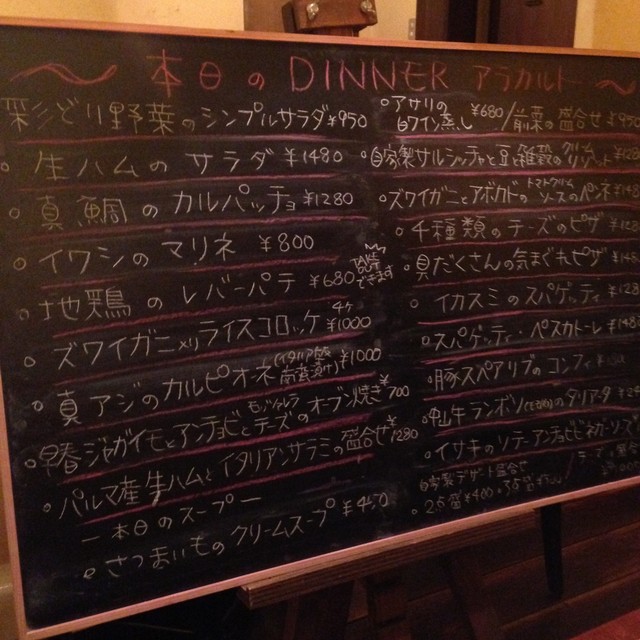 本日の DINNER アラカルト
彩どり野菜のシンプルサラダ ¥950
生ハムの サラダ ¥1480
真鯛の カルパッチョ ¥1280
イワシの マリネ ¥800
地鶏の レバーパテ ¥680
ズワイガニ入りライスコロッケ 4ケ ¥1000
真アジのカルピオーネ ¥1000
早春ジャガイモとアンチョビとモッツァレラチーズのオーブン焼き ¥700
パルマ産生ハムとイタリアンサラミの盛合せ ¥1280
ー 本日の スープ ー
さつまいもの クリームスープ ¥450
アサリの白ワイン蒸し ¥680 / 前菜の盛合せ
自家製サルシッチャと豆と雑穀のクリームリゾット
ズワイガニとアボカドのトマトクリームソースのペンネ
4種類のチーズのピザ
具だくさんの気まぐれピザ
イカスミのスパゲッティ
スパゲッティ・ペスカトーレ
豚スペアリブのコンフィ
牛ランボソ のタリアータ
イサキのソテー アンチョビ
自家製デザート盛合せ